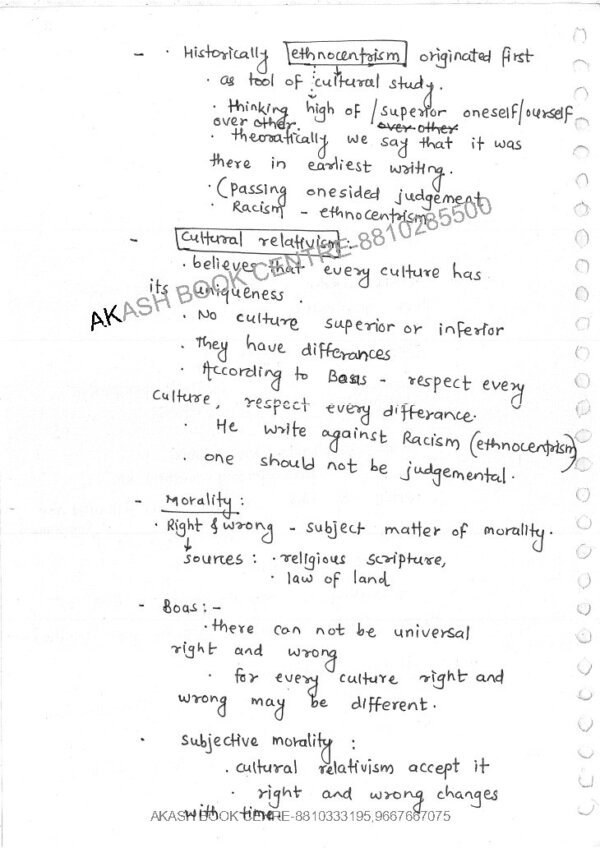 - · Historically ethnocentrism originated first
· as tool of cultural study.
· thinking high of / superior oneself/ourself
over other. over other
· theoratically we say that it was
there in earliest writing.
· (passing onesided judgement
· Racism - ethnocentrism
- Cultural relativism :-
· believes that every culture has
its uniqueness .
· No culture superior or inferior
· They have differances
· According to Boas - respect every
culture, respect every differance.
· He write against Racism (ethnocentrism)
· one should not be judgemental.
- Morality :
· Right & wrong - subject matter of morality.
sources : · religious scripture,
· law of land
- Boas :-
· there can not be universal
right and wrong
· for every culture right and
wrong may be different.
· subjective morality :
· cultural relativism accept it
· right and wrong changes
with time.
AKASH BOOK CENTRE-8810285500
AKASH BOOK CENTRE-8810333195,9667667075